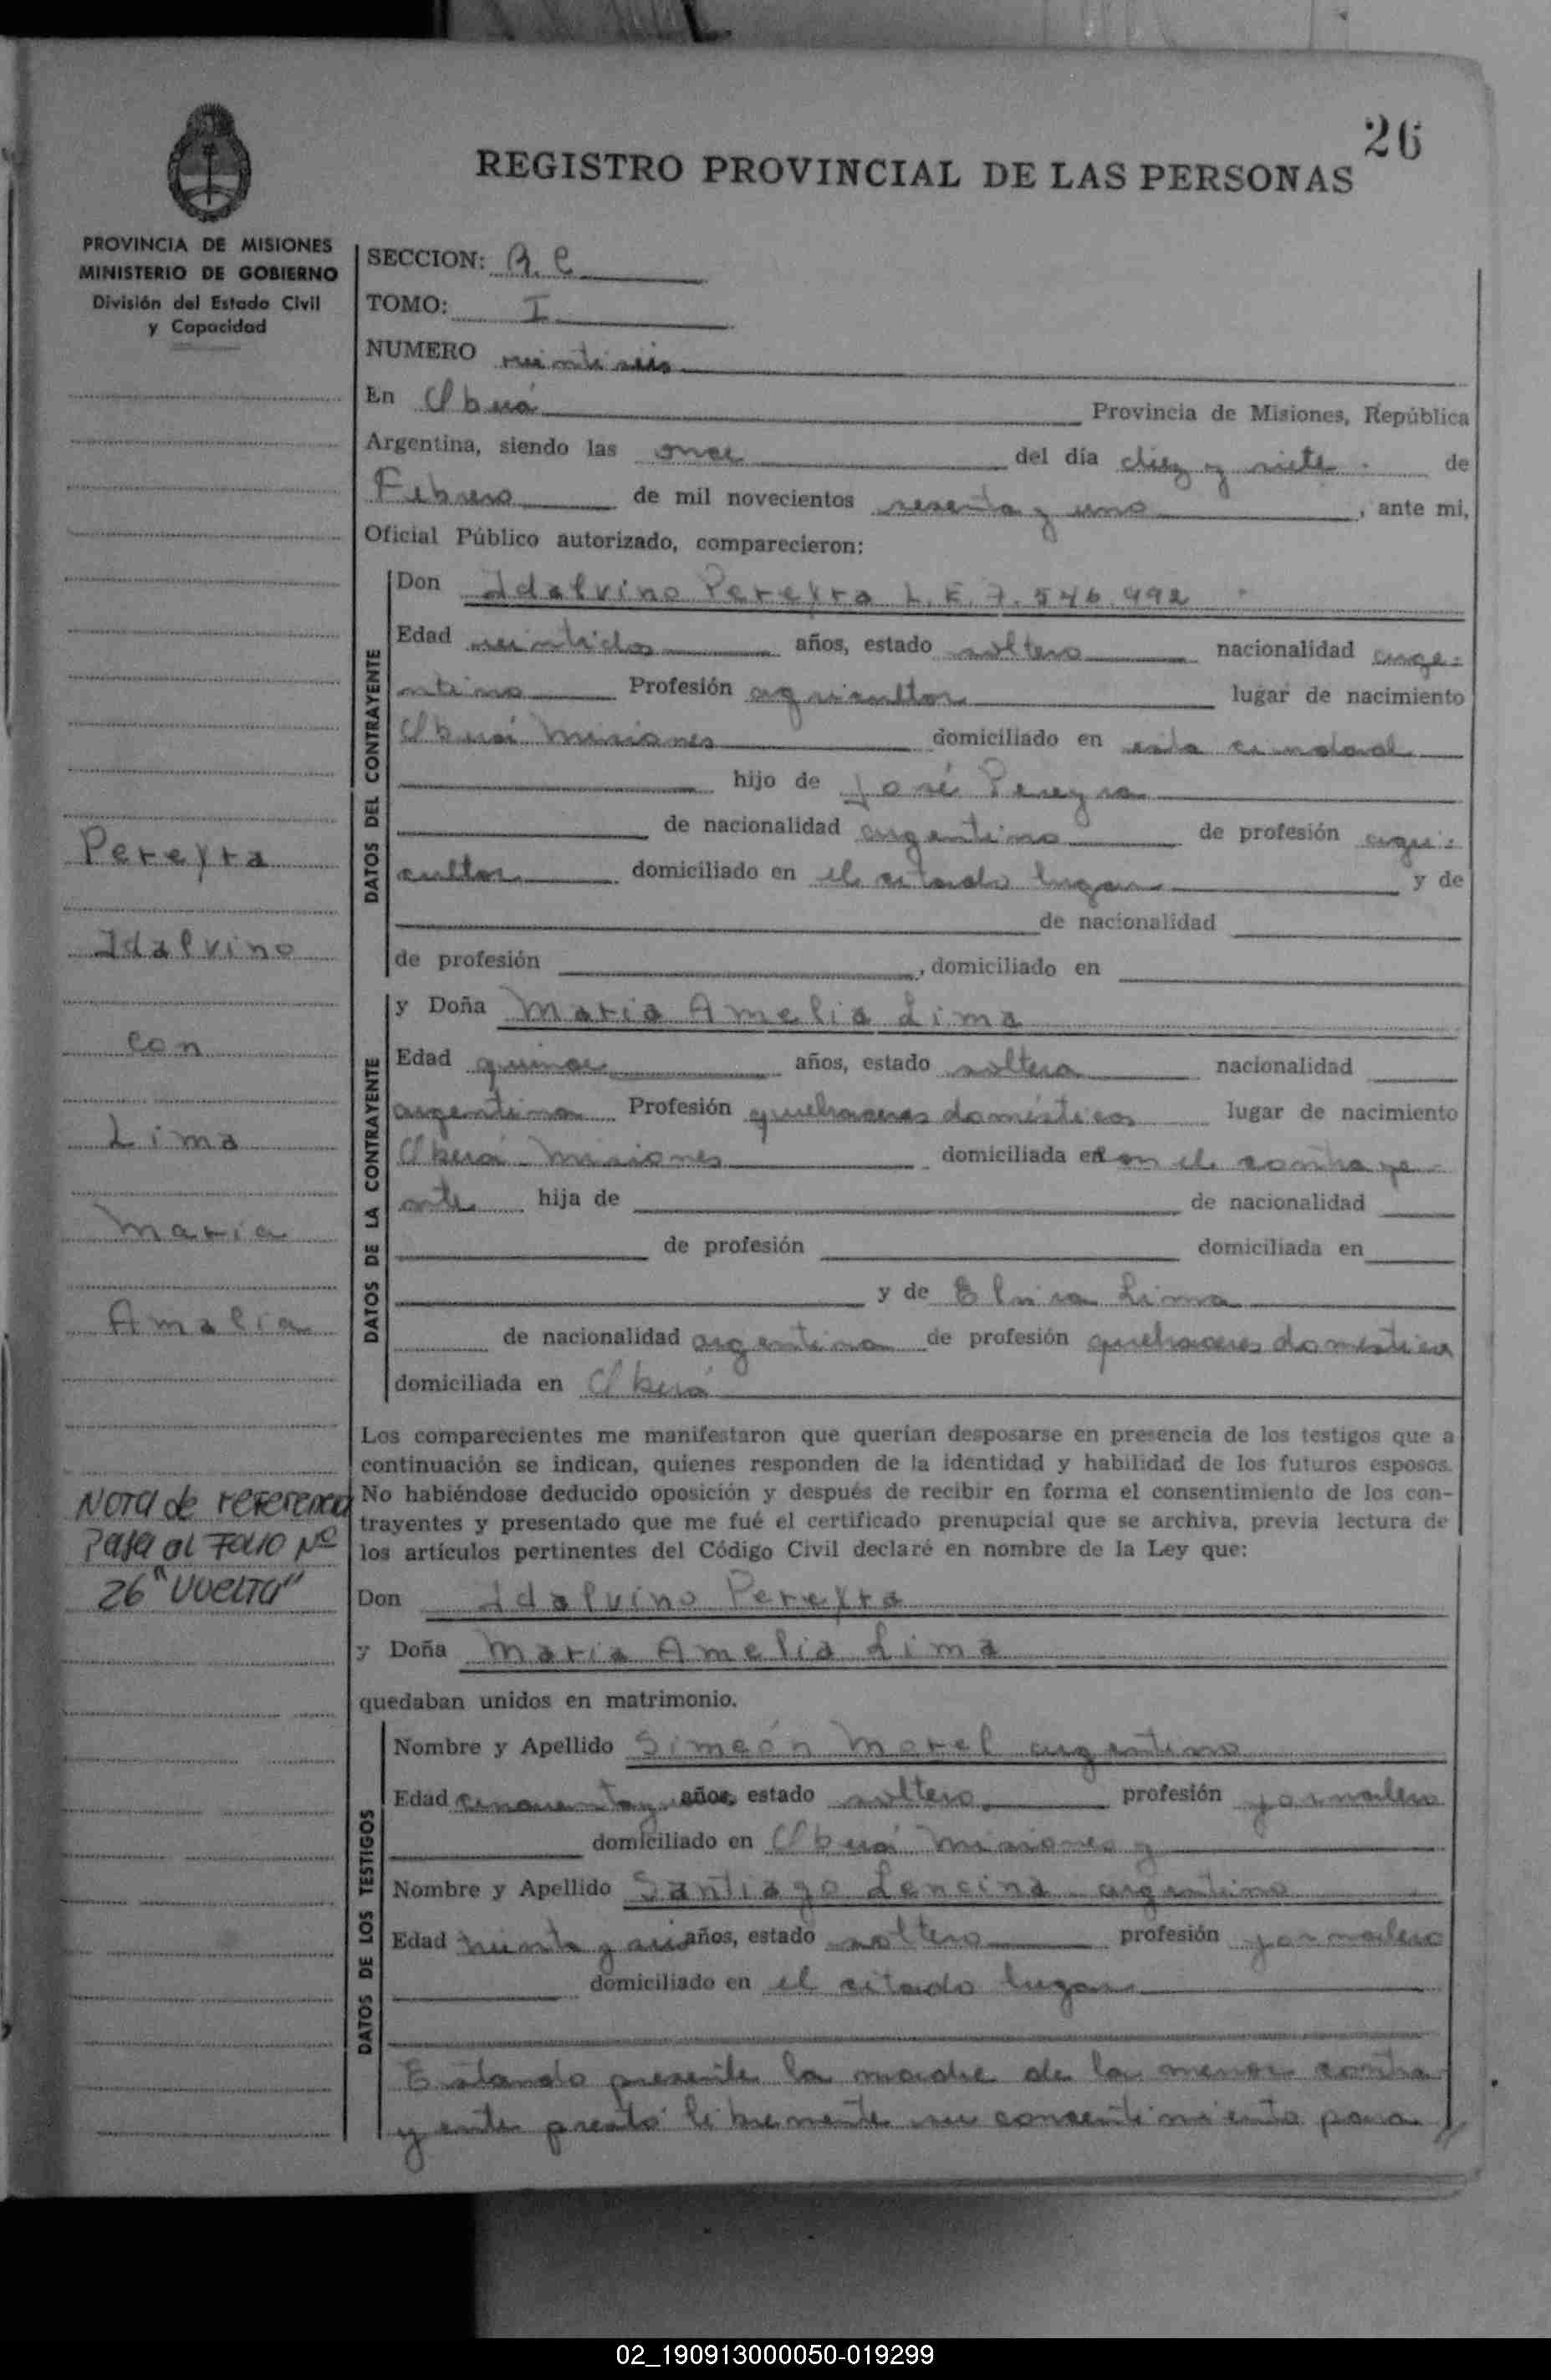 26
REGISTRO PROVINCIAL DE LAS PERSONAS
PROVINCIA DE MISIONES
MINISTERIO DE GOBIERNO
División del Estado Civil
y Capacidad
SECCION: R. C
TOMO: I
NUMERO veintiseis
En Oberá Provincia de Misiones, República
Argentina, siendo las once del día diez y siete de
Febrero de mil novecientos sesenta y uno, ante mi,
Oficial Público autorizado, comparecieron:
DATOS DEL CONTRAYENTE
Don Idalvino Pereyra L.E. 7.546.992
Edad veintidos años, estado soltero nacionalidad arge-
ntino Profesión agricultor lugar de nacimiento
Oberá Misiones domiciliado en esta ciudad
hijo de José Pereyra
de nacionalidad argentino de profesión agri-
cultor domiciliado en el citado lugar y de
de nacionalidad
de profesión , domiciliado en
DATOS DE LA CONTRAYENTE
y Doña Maria Amelia Lima
Edad quince años, estado soltera nacionalidad
argentina Profesión quehaceres domésticos lugar de nacimiento
Oberá Misiones domiciliada en el contraye-
nte hija de de nacionalidad
de profesión domiciliada en
y de Elvira Lima
de nacionalidad argentina de profesión quehaceres domestico
domiciliada en Oberá
Los comparecientes me manifestaron que querían desposarse en presencia de los testigos que a
continuación se indican, quienes responden de la identidad y habilidad de los futuros esposos.
No habiéndose deducido oposición y después de recibir en forma el consentimiento de los con-
trayentes y presentado que me fué el certificado prenupcial que se archiva, previa lectura de
los artículos pertinentes del Código Civil declaré en nombre de la Ley que:
Don Idalvino Pereyra
y Doña Maria Amelia Lima
quedaban unidos en matrimonio.
DATOS DE LOS TESTIGOS
Nombre y Apellido Simeón Morel argentino
Edad cincuenta y años, estado soltero profesión jornalero
domiciliado en Oberá Misiones y
Nombre y Apellido Santiago Lencina argentino
Edad treinta y seis años, estado soltero profesión jornalero
domiciliado en el citado lugar
Estando presente la madre de la menor contra
yente prestó libremente su consentimiento para //
Pereyra
Idalvino
con
Lima
Maria
Amalia
Nota de referencia
Pasa al Folio Nº
26 "Vuelta"
02_190913000050-019299